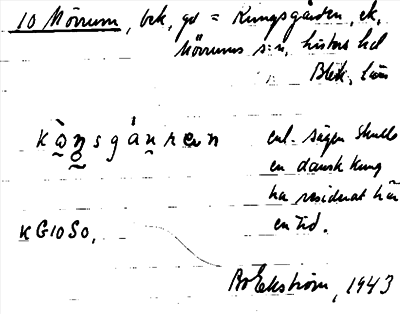 10 Mörrum, bek, gd = Kungsgården, ek,
Mörrums s:n, Listers hd
Blek. län
kåŋsgåṇren enl. sägen skulle
en dansk kung
ha residerat här
en tid.
KG10SO,
Bo Ekström, 1943